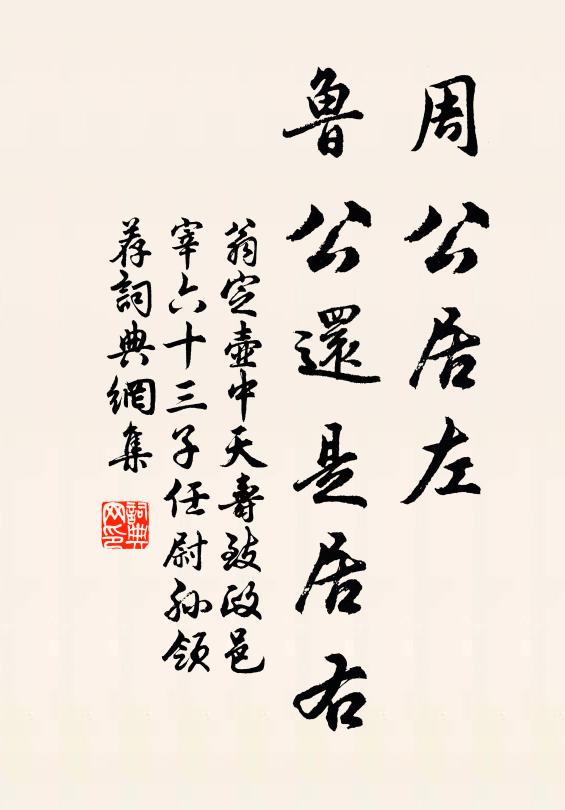 周公居左
魯公還是居右
翁定壺中天壽致政邑
宰六十三子任尉孫領
荐詞典網集
詞典
网印